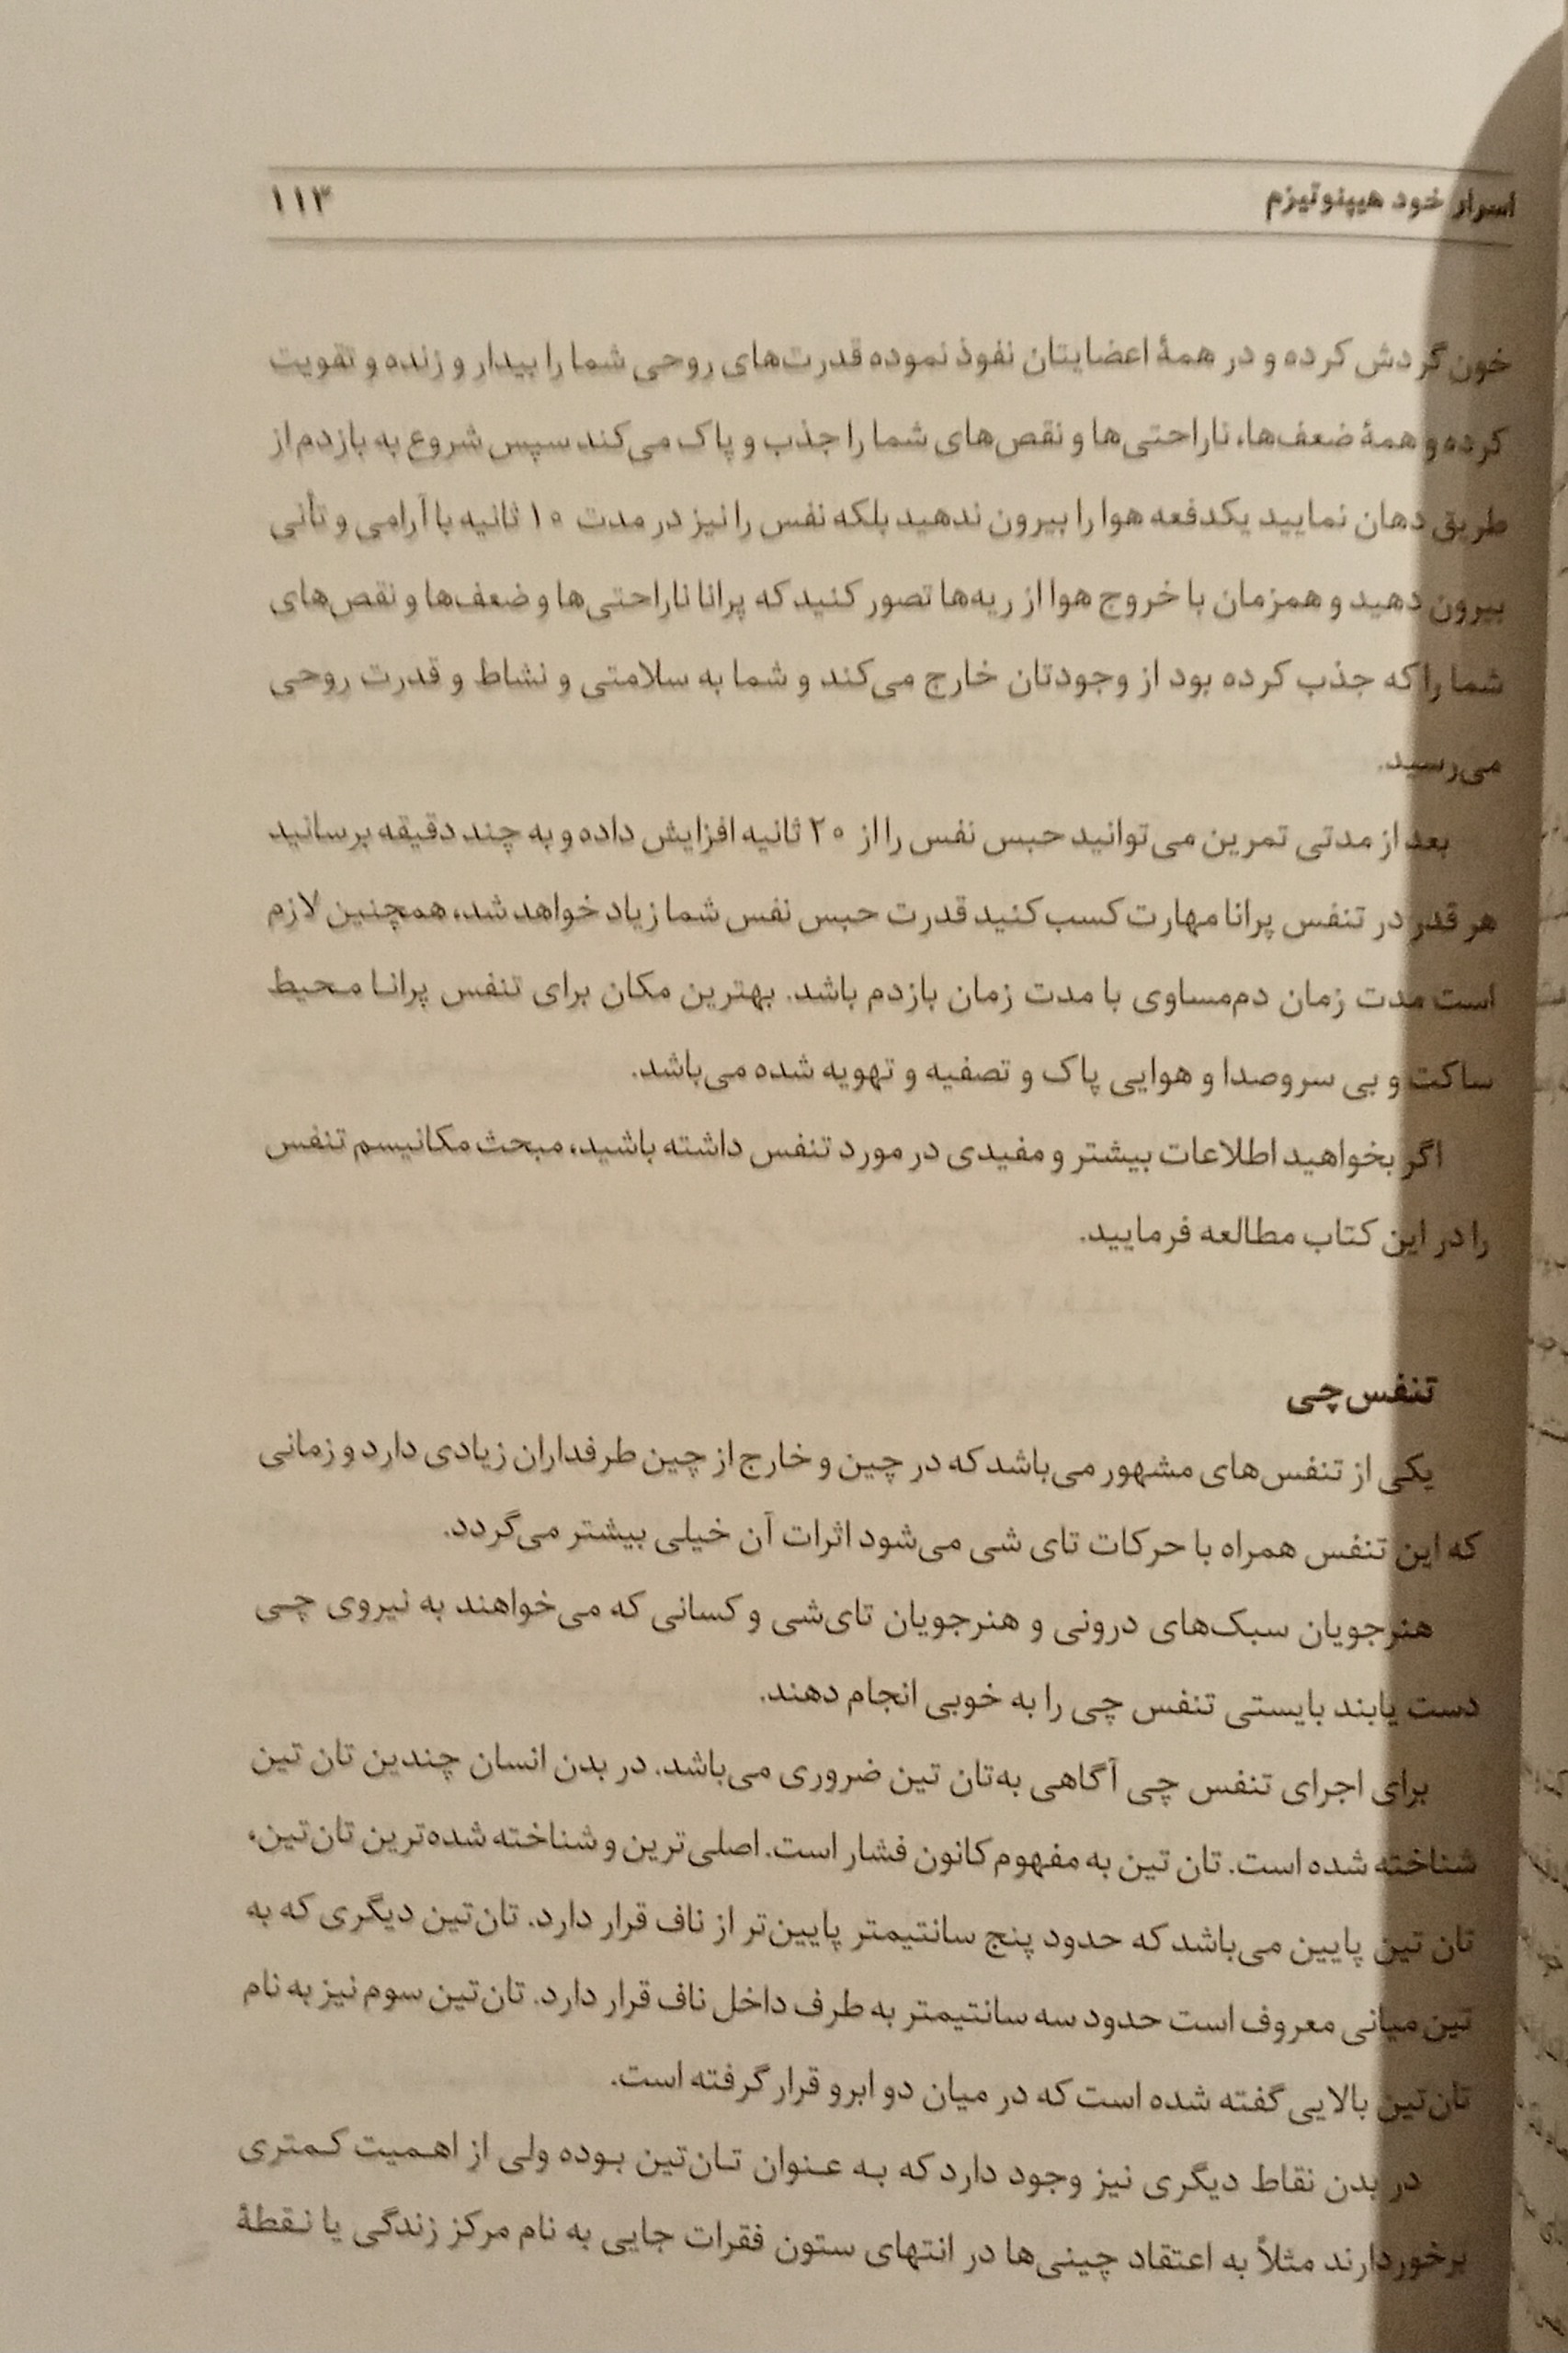 اسرار خود هیپنوتیزم ۱۱۳
خون گردش کرده و در همهٔ اعضایتان نفوذ نموده قدرت‌های روحی شما را بیدار و زنده و تقویت
کرده و همهٔ ضعف‌ها، ناراحتی‌ها و نقص‌های شما را جذب و پاک می‌کند سپس شروع به بازدم از
طریق دهان نمایید یکدفعه هوا را بیرون ندهید بلکه نفس را نیز در مدت ۱۰ ثانیه با آرامی و تأنی
بیرون دهید و همزمان با خروج هوا از ریه‌ها تصور کنید که پرانا ناراحتی‌ها و ضعف‌ها و نقص‌های
شما را که جذب کرده بود از وجودتان خارج می‌کند و شما به سلامتی و نشاط و قدرت روحی
می‌رسید.
بعد از مدتی تمرین می‌توانید حبس نفس را از ۲۰ ثانیه افزایش داده و به چند دقیقه برسانید
هر قدر در تنفس پرانا مهارت کسب کنید قدرت حبس نفس شما زیاد خواهد شد، همچنین لازم
است مدت زمان دم‌مساوی با مدت زمان بازدم باشد. بهترین مکان برای تنفس پرانا محیط
ساکت و بی سروصدا و هوایی پاک و تصفیه و تهویه شده می‌باشد.
اگر بخواهید اطلاعات بیشتر و مفیدی در مورد تنفس داشته باشید، مبحث مکانیسم تنفس
را در این کتاب مطالعه فرمایید.
تنفس‌چی
یکی از تنفس‌های مشهور می‌باشد که در چین و خارج از چین طرفداران زیادی دارد و زمانی
که این تنفس همراه با حرکات تای شی می‌شود اثرات آن خیلی بیشتر می‌گردد.
هنرجویان سبک‌های درونی و هنرجویان تای‌شی و کسانی که می‌خواهند به نیروی چی
دست یابند بایستی تنفس چی را به خوبی انجام دهند.
برای اجرای تنفس چی آگاهی به‌تان تین ضروری می‌باشد. در بدن انسان چندین تان تین
شناخته شده است. تان تین به مفهوم کانون فشار است. اصلی‌ترین و شناخته شده‌ترین تان‌تین،
تان تین پایین می‌باشد که حدود پنج سانتیمتر پایین‌تر از ناف قرار دارد. تان‌تین دیگری که به
تین میانی معروف است حدود سه سانتیمتر به طرف داخل ناف قرار دارد. تان‌تین سوم نیز به نام
تان‌تین بالایی گفته شده است که در میان دو ابرو قرار گرفته است.
در بدن نقاط دیگری نیز وجود دارد که به عنوان تان‌تین بوده ولی از اهمیت کمتری
برخوردارند مثلاً به اعتقاد چینی‌ها در انتهای ستون فقرات جایی به نام مرکز زندگی یا نقطهٔ